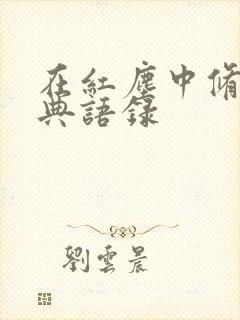 在紅塵中脩
典語錄
劉雲晨